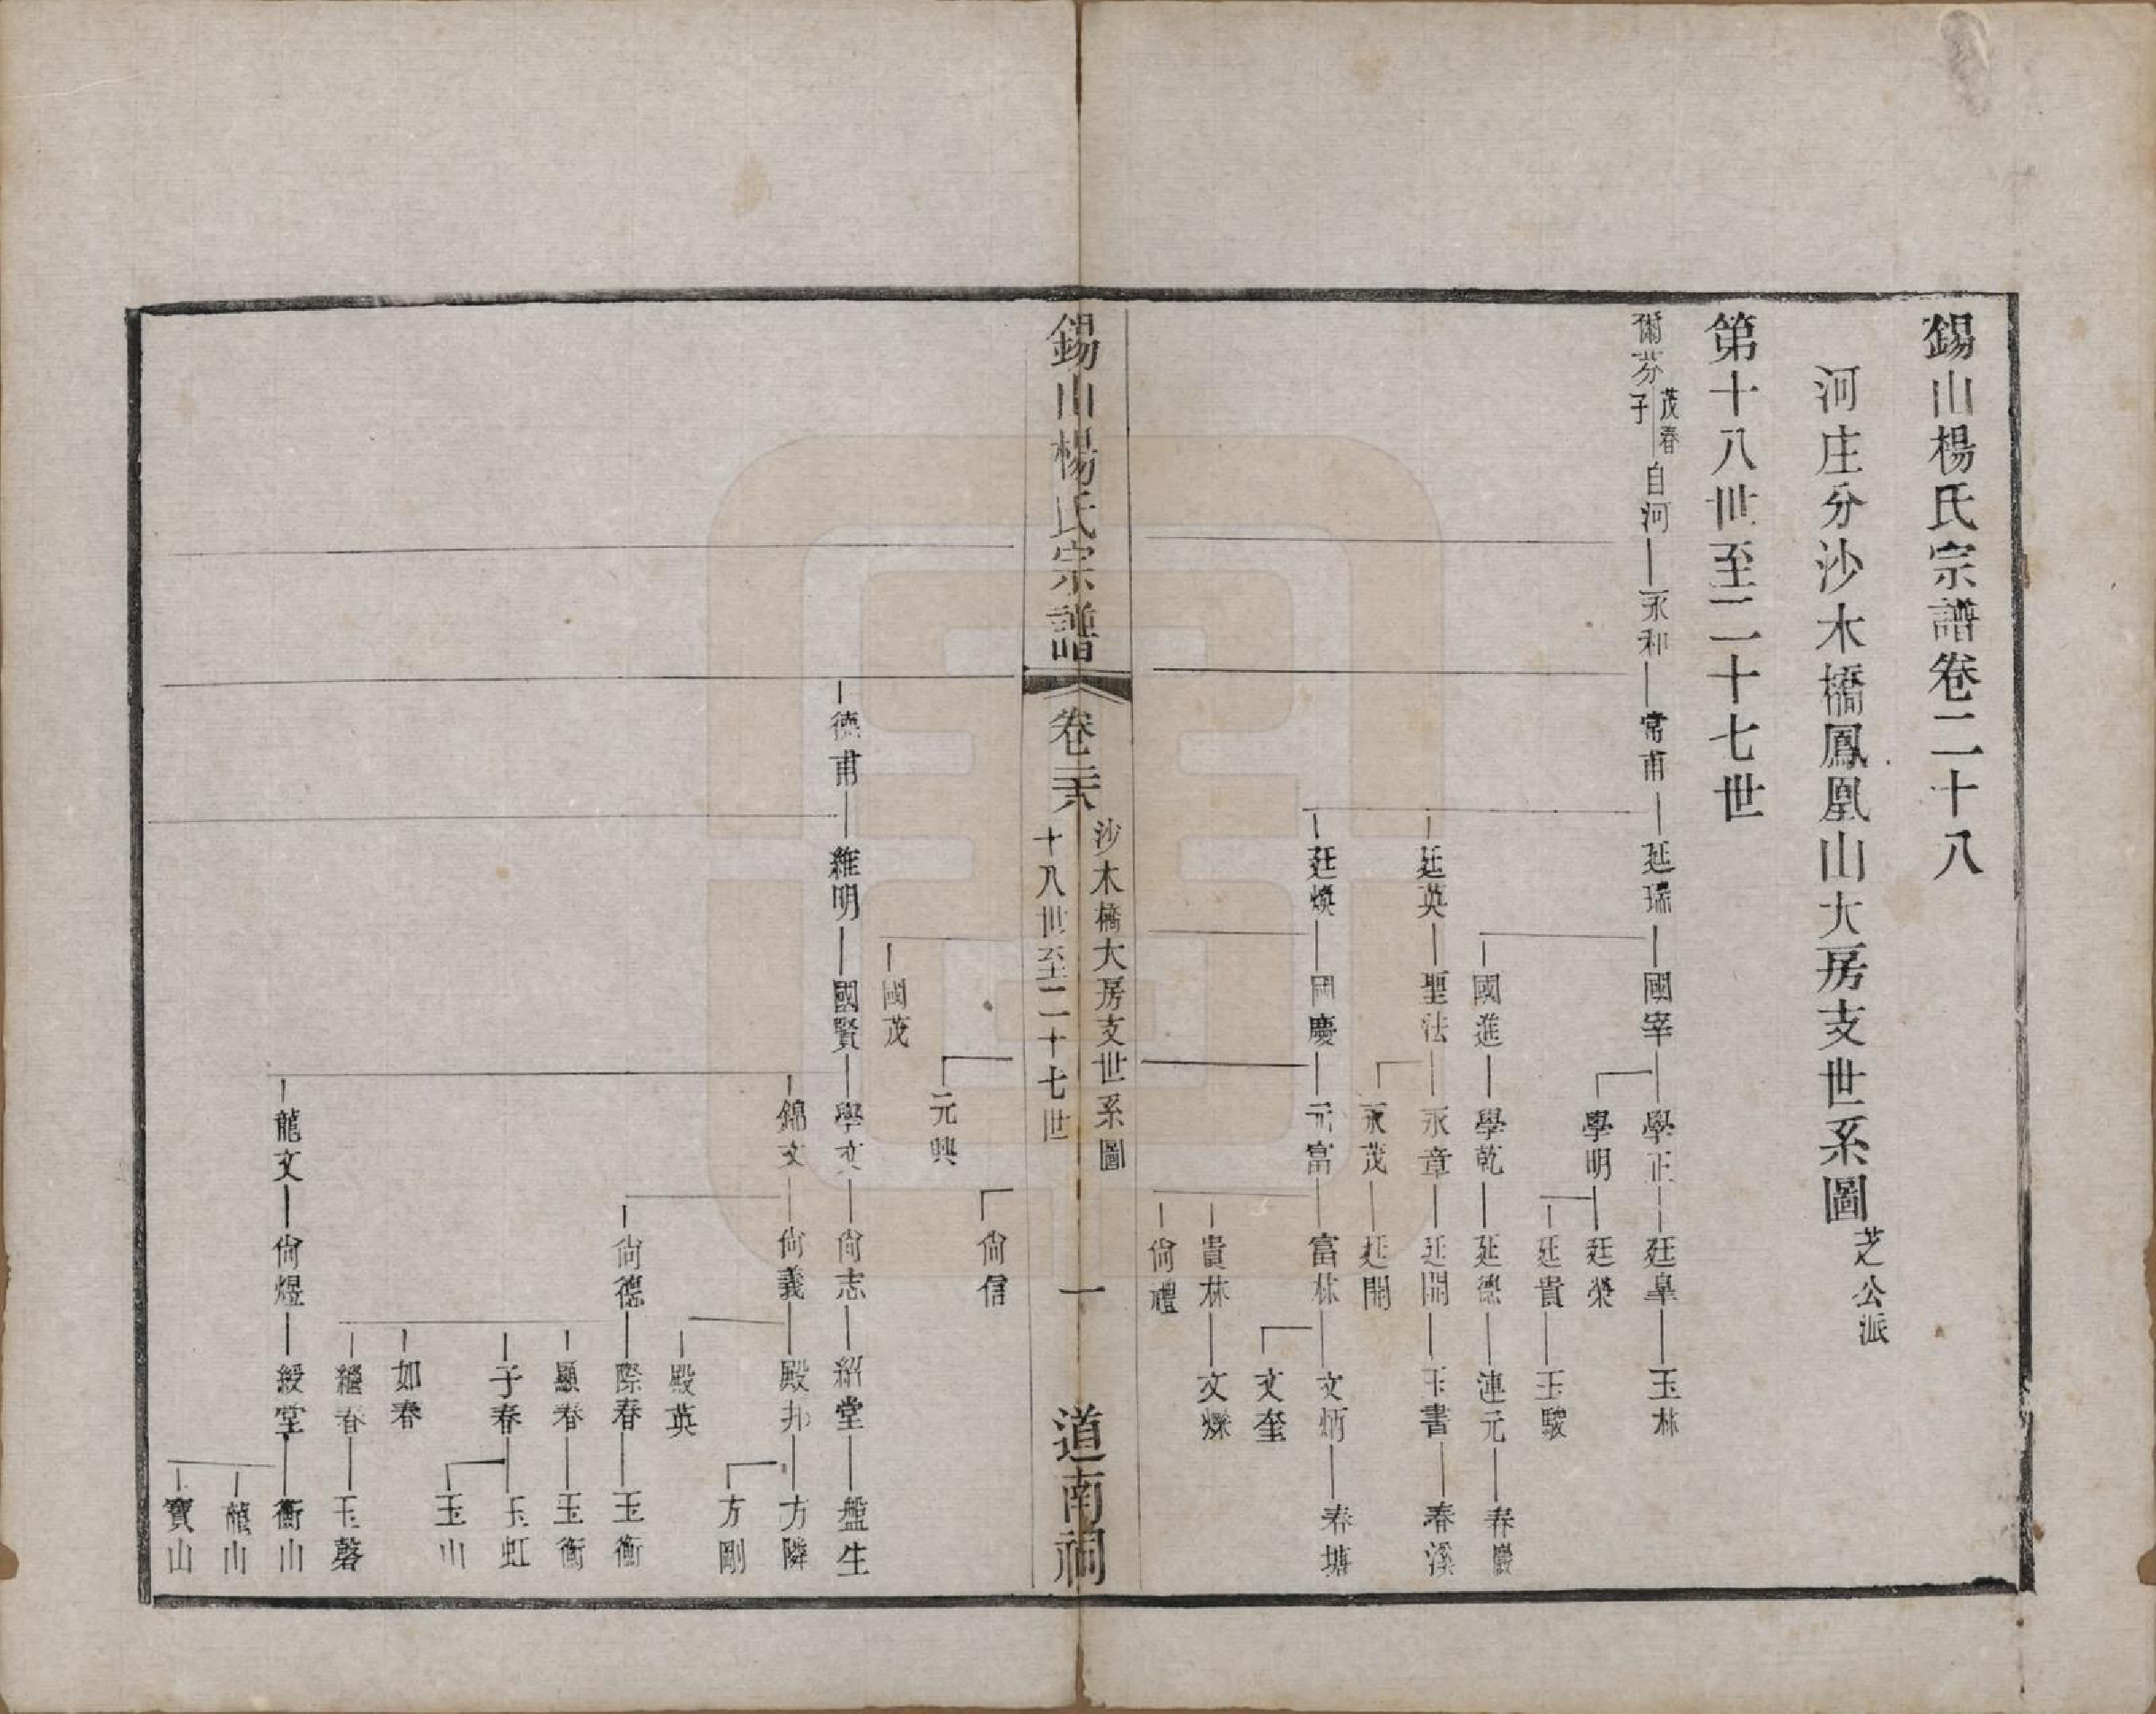 錫山楊氏宗譜卷二十八
河庄分沙木橋鳳凰山大房支世系圖 芝公派
第十八世至二十七世
爾芬 茂春子 自河 永和 常甫 廷瑞 國宰 學正 廷臯 玉林
學明 廷榮
廷貴 玉駿
國進 學乾 廷德 連元 春巖
廷英 聖法 永章 廷開 玉書 春溪
永茂 廷開
廷煥 國慶 元富 富林 文炳 春塘
文奎
貴林 文燦
尙禮
錫山楊氏宗譜 卷二十八 沙木橋大房支世系圖 十八世至二十七世 一 道南祠
尙信
元興
國茂
德甫 維明 國賢 學文 尙志 紹堂 盤生
錦文 尙義 殿邦 方隣
方剛
殿英
尙德 際春 玉衡
顯春 玉衡
子春 玉虹
玉山
如春
繼春 玉磬
龍文 尙煜 綬堂 衡山
龍山
寶山